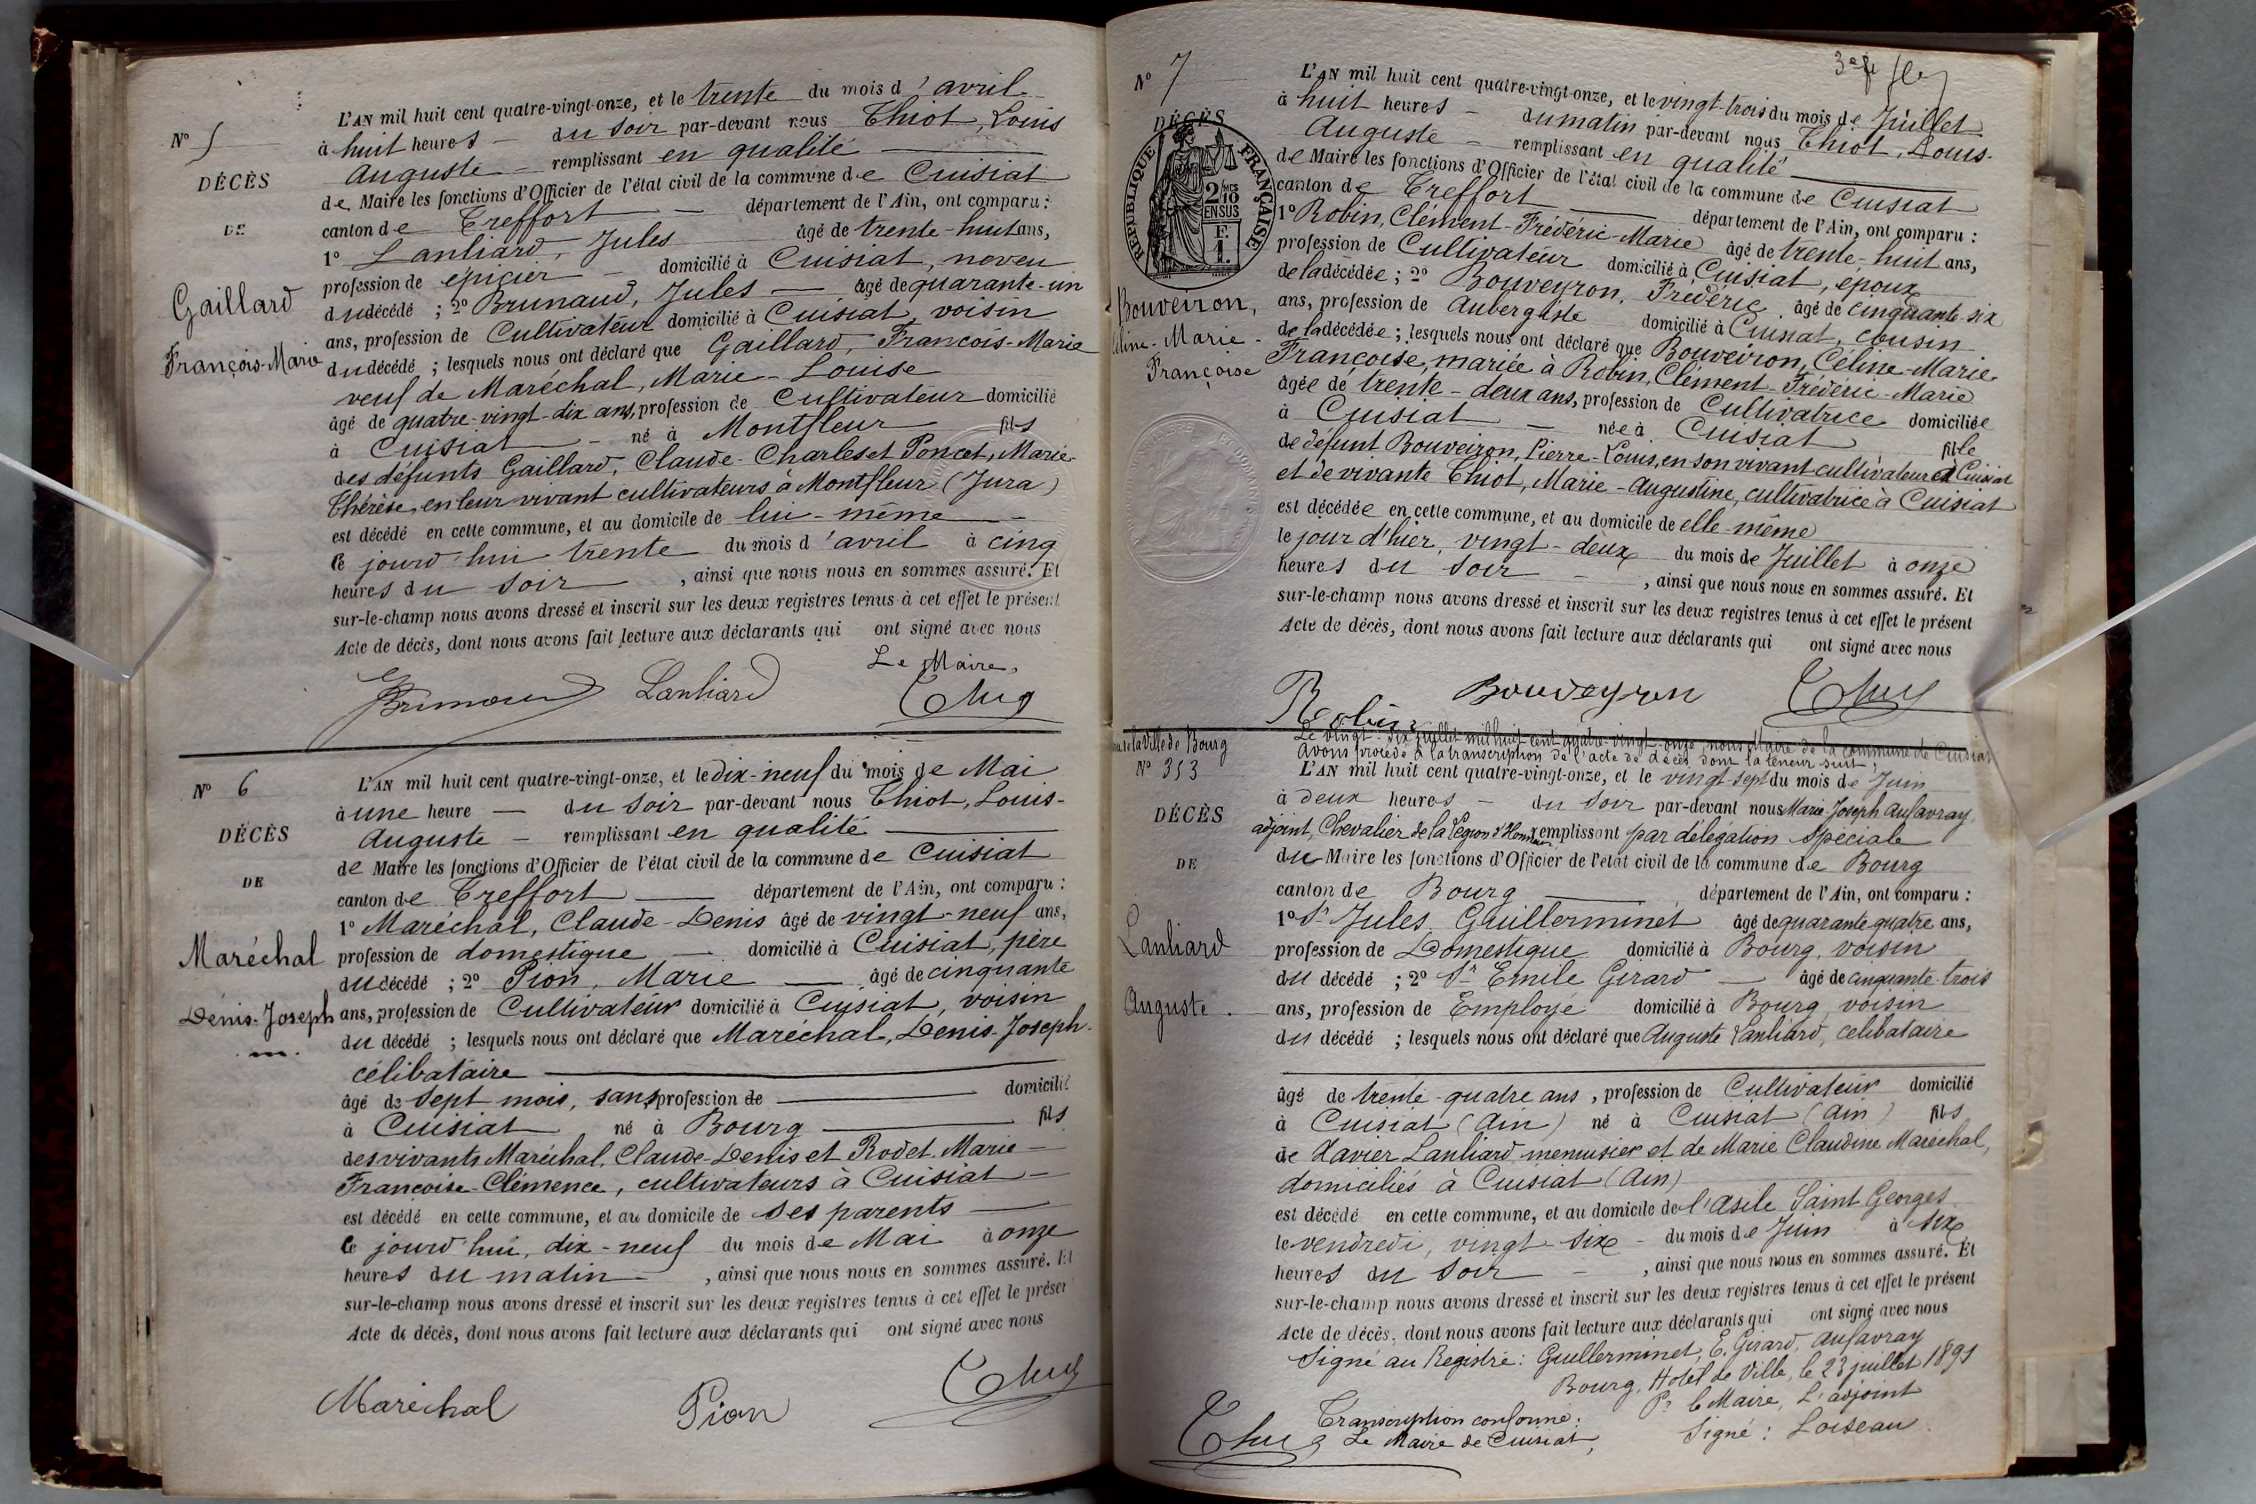 N° 5
DÉCÈS
DE
Gaillard
François-Marie
L'AN mil huit cent quatre-vingt-onze, et le trente du mois d'avril
à huit heures du soir par-devant nous Thiot, Louis
Auguste remplissant en qualité
de Maire les fonctions d'Officier de l'état civil de la commune de Cuisiat
canton de Treffort département de l'Ain, ont comparu :
1° Lanliard, Jules âgé de trente-huit ans,
profession de épicier domicilié à Cuisiat, neveu
du décédé ; 2° Brunaud, Jules âgé de quarante-un
ans, profession de Cultivateur domicilié à Cuisiat, voisin
du décédé ; lesquels nous ont déclaré que Gaillard, François-Marie
veuf de Maréchal, Marie-Louise
âgé de quatre-vingt-dix ans, profession de Cultivateur domicilié
à Cuisiat né à Montfleur fils
des défunts Gaillard, Claude-Charles et Poncet, Marie-
Thérèse, en leur vivant cultivateurs à Montfleur (Jura)
est décédé en cette commune, et au domicile de lui-même
ce jourd'hui trente du mois d'avril à cinq
heures du soir, ainsi que nous nous en sommes assuré. Et
sur-le-champ nous avons dressé et inscrit sur les deux registres tenus à cet effet le présent
Acte de décès, dont nous avons fait lecture aux déclarants qui ont signé avec nous
Le Maire,
Lanliard
N° 6
DÉCÈS
DE
Maréchal
Denis-Joseph
L'AN mil huit cent quatre-vingt-onze, et le dix-neuf du mois de Mai
à une heure du soir par-devant nous Thiot, Louis-
Auguste remplissant en qualité
de Maire les fonctions d'Officier de l'état civil de la commune de Cuisiat
canton de Treffort département de l'Ain, ont comparu :
1° Maréchal, Claude-Denis âgé de vingt-neuf ans,
profession de domestique domicilié à Cuisiat, père
du décédé ; 2° Pion, Marie âgé de cinquante
ans, profession de Cultivateur domicilié à Cuisiat, voisin
du décédé ; lesquels nous ont déclaré que Maréchal, Denis-Joseph
célibataire
âgé de sept mois, sans profession de domicilié
à Cuisiat né à Bourg fils
des vivants Maréchal, Claude-Denis et Rodet, Marie
Françoise-Clémence, cultivateurs à Cuisiat
est décédé en cette commune, et au domicile de ses parents
ce jourd'hui, dix-neuf du mois de Mai à onze
heures du matin, ainsi que nous nous en sommes assuré. Et
sur-le-champ nous avons dressé et inscrit sur les deux registres tenus à cet effet le présent
Acte de décès, dont nous avons fait lecture aux déclarants qui ont signé avec nous
Maréchal Pion
N° 7
DÉCÈS
RÉPUBLIQUE FRANÇAISE
2/10
EN SUS
F.
1.
Bouveiron,
Céline-Marie-
Françoise
L'AN mil huit cent quatre-vingt-onze, et le vingt-trois du mois de Juillet
à huit heures du matin par-devant nous Thiot, Louis-
Auguste remplissant en qualité
de Maire les fonctions d'Officier de l'état civil de la commune de Cuisiat
canton de Treffort département de l'Ain, ont comparu :
1° Robin, Clément-Frédéric-Marie âgé de trente-huit ans,
profession de Cultivateur domicilié à Cuisiat, époux
de la décédée ; 2° Bouveyron, Frédéric âgé de cinquante-six
ans, profession de Aubergiste domicilié à Cuisiat, cousin
de la décédée ; lesquels nous ont déclaré que Bouveiron, Céline-Marie-
Françoise, mariée à Robin, Clément-Frédéric-Marie
âgée de trente-deux ans, profession de Cultivatrice domiciliée
à Cuisiat née à Cuisiat fille
de défunt Bouveiron, Pierre-Louis, en son vivant cultivateur à Cuisiat
et de vivante Thiot, Marie-Augustine, cultivatrice à Cuisiat
est décédée en cette commune, et au domicile de elle-même
le jour d'hier, vingt-deux du mois de Juillet à onze
heures du soir, ainsi que nous nous en sommes assuré. Et
sur-le-champ nous avons dressé et inscrit sur les deux registres tenus à cet effet le présent
Acte de décès, dont nous avons fait lecture aux déclarants qui ont signé avec nous
Robin Bouveyron
Le vingt-six juillet mil huit cent quatre-vingt-onze, nous Maire de la commune de Cuisiat
avons procédé à la transcription de l'acte de décès dont la teneur suit :
la Ville de Bourg
N° 353
DÉCÈS
DE
Lanliard
Auguste
L'AN mil huit cent quatre-vingt-onze, et le vingt-sept du mois de Juin
à deux heures du soir par-devant nous Marie Joseph Aufavray,
adjoint, Chevalier de la Légion d'Honneur remplissant par délégation Spéciale
du Maire les fonctions d'Officier de l'état civil de la commune de Bourg
canton de Bourg département de l'Ain, ont comparu :
1° Sr Jules Guillerminet âgé de quarante quatre ans,
profession de Domestique domicilié à Bourg, voisin
du décédé ; 2° Sr Emile Girard âgé de cinquante-trois
ans, profession de Employé domicilié à Bourg, voisin
du décédé ; lesquels nous ont déclaré que Auguste Lanliard, célibataire
âgé de trente-quatre ans, profession de Cultivateur domicilié
à Cuisiat (Ain) né à Cuisiat (Ain) fils
de Xavier Lanliard menuisier et de Marie Claudine Maréchal,
domiciliés à Cuisiat (Ain)
est décédé en cette commune, et au domicile de l'asile Saint Georges
le vendredi, vingt-six du mois de Juin à six
heures du soir, ainsi que nous nous en sommes assuré. Et
sur-le-champ nous avons dressé et inscrit sur les deux registres tenus à cet effet le présent
Acte de décès, dont nous avons fait lecture aux déclarants qui ont signé avec nous
Signé au Registre : Guillerminet, E. Girard, Aufavray
Bourg, Hotel de Ville, le 23 juillet 1891
Pr le Maire, L'adjoint
Signé : Loiseau
Transcription conforme :
Le Maire de Cuisiat,